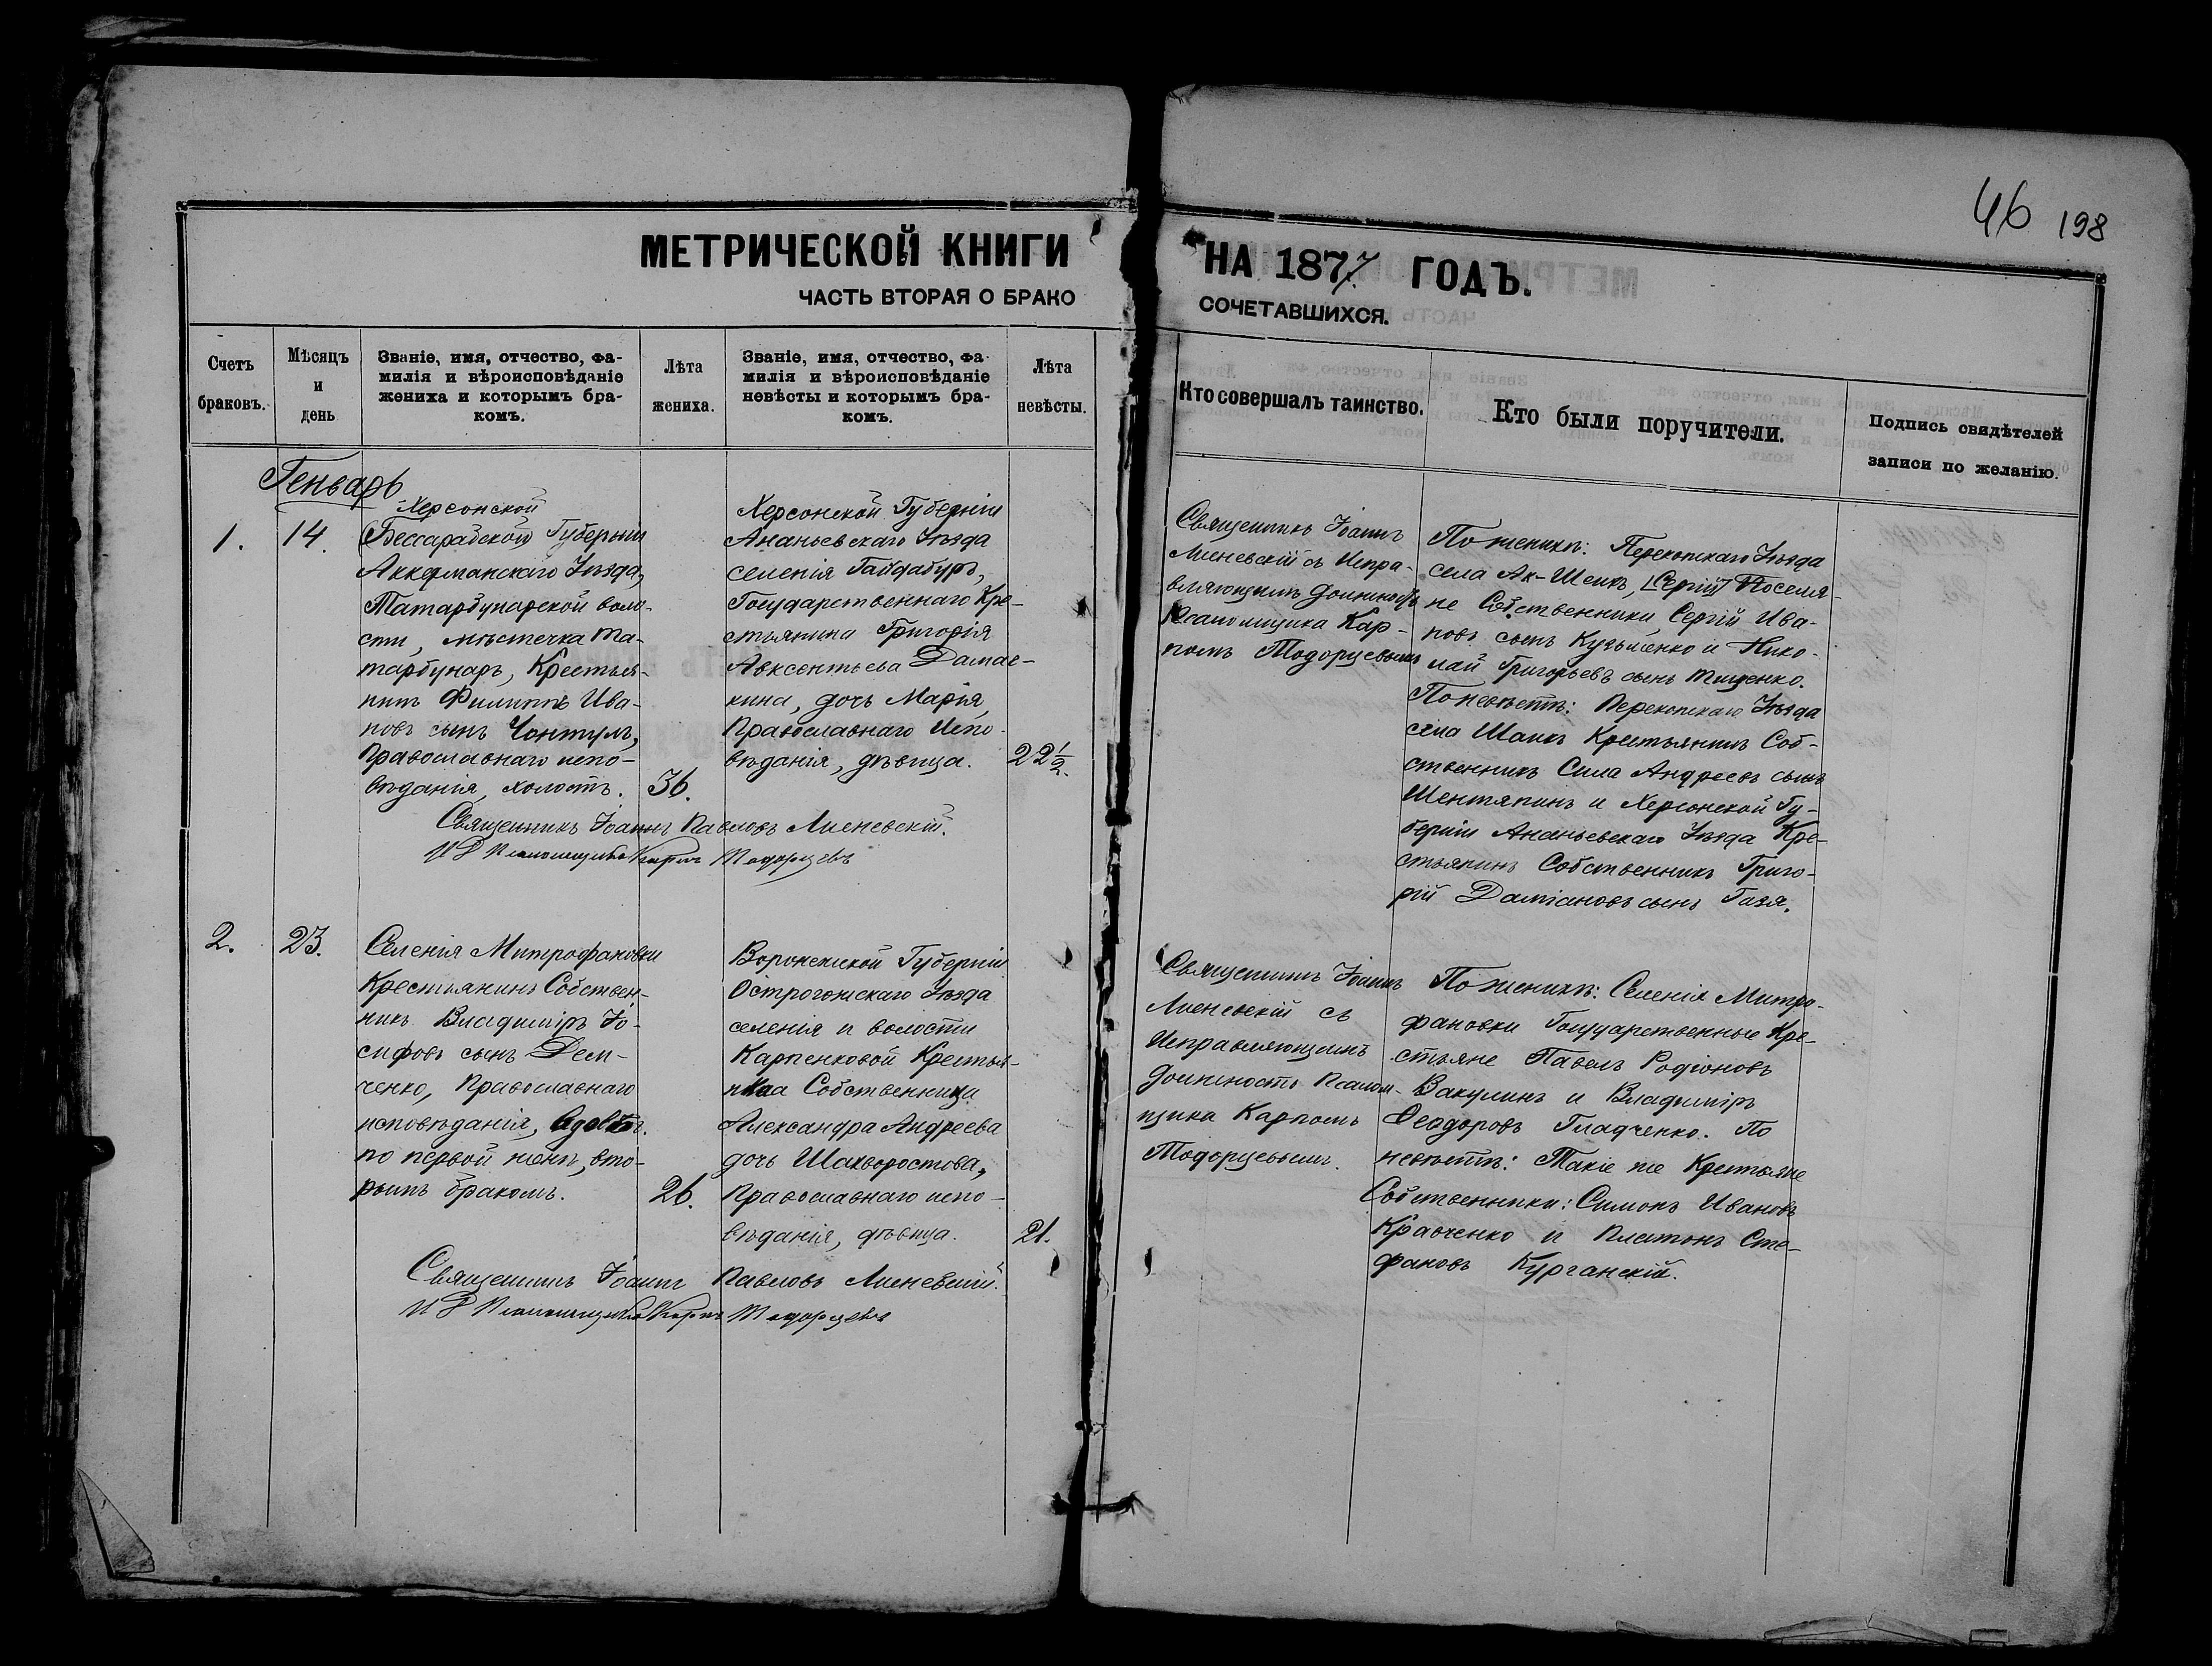 46 198
МЕТРИЧЕСКОЙ КНИГИ НА 1877 ГОДЪ.
ЧАСТЬ ВТОРАЯ О БРАКО СОЧЕТАВШИХСЯ.
Счетъ
браковъ.
Мѣсяцъ
и
день
Званіе, имя, отчество, фа-
милія и вѣроисповѣданіе
жениха и которымъ бра-
комъ.
Лѣта
жениха.
Званіе, имя, отчество, фа-
милія и вѣроисповѣданіе
невѣсты и которымъ бра-
комъ.
Лѣта
невѣсты.
Кто совершалъ таинство.
Кто были поручители.
Подпись свидѣтелей
записи по желанію.
Генварь
1.
14.
Херсонской
Бессарабской Губерніи
Аккерманскаго Уѣзда,
Татарбунарской воло-
сти, мѣстечка Та-
тарбунаръ, Крестья-
нинъ Филиппъ Ива-
новъ сынъ Чонтулъ,
Православнаго испо-
вѣданія, холостъ.
36.
Херсонской Губерніи
Ананьевскаго Уѣзда
селенія Гайдабуръ,
Государственнаго Кре-
стьянина Григорія
Авксентьева Дамас-
кина, дочь Марія,
Православнаго Испо-
вѣданія, дѣвица.
22 1/2.
Священникъ Іоаннъ
Лисневскій съ Испра-
вляющимъ должность
Псаломщика Кар-
помъ Тодорцевымъ
По женихѣ: Перекопскаго Уѣзда
села Ак-Шеихъ, [Сергій] Поселя-
не Собственники, Сергій Ива-
новъ сынъ Кузьменко и Нико-
лай Григорьевъ сынъ Тищенко.
По невѣстѣ: Перекопскаго Уѣзда
села Шеихъ Крестьянинъ Соб-
ственникъ Сила Андреевъ сынъ
Шентяпинъ и Херсонской Гу-
берніи Ананьевскаго Уѣзда Кре-
стьянинъ Собственникъ Григо-
рій Даміановъ сынъ Газя.
Священникъ Іоаннъ Павловъ Лисневскій.
И Д Псаломщика Карпъ Тодорцевъ
2.
23.
Селенія Митрофановки
Крестьянинъ Собствен-
никъ Владиміръ Іо-
сифовъ сынъ Дем-
ченко, Православнаго
исповѣданія, вдовъ
по первой женѣ, вто-
рымъ бракомъ.
26.
Воронежской Губерніи
Острогожскаго Уѣзда
селенія и волости
Карпенковой Крестья-
нка Собственница
Александра Андреева
дочь Шахворостова,
Православнаго испо-
вѣданія, дѣвица.
21.
Священникъ Іоаннъ
Лисневскій съ
Исправляющимъ
должность Псалом-
щика Карпомъ
Тодорцевымъ.
По женихѣ: Селенія Митро-
фановки Государственные Кре-
стьяне Павелъ Родіоновъ
Вакулинъ и Владиміръ
Феодоровъ Гладченко. По
невѣстѣ: Такіе же Крестьяне
Собственники: Симонъ Ивановъ
Кравченко и Платонъ Сте-
фановъ Курганскій.
Священникъ Іоаннъ Павловъ Лисневскій.
И Д Псаломщика Карпъ Тодорцевъ